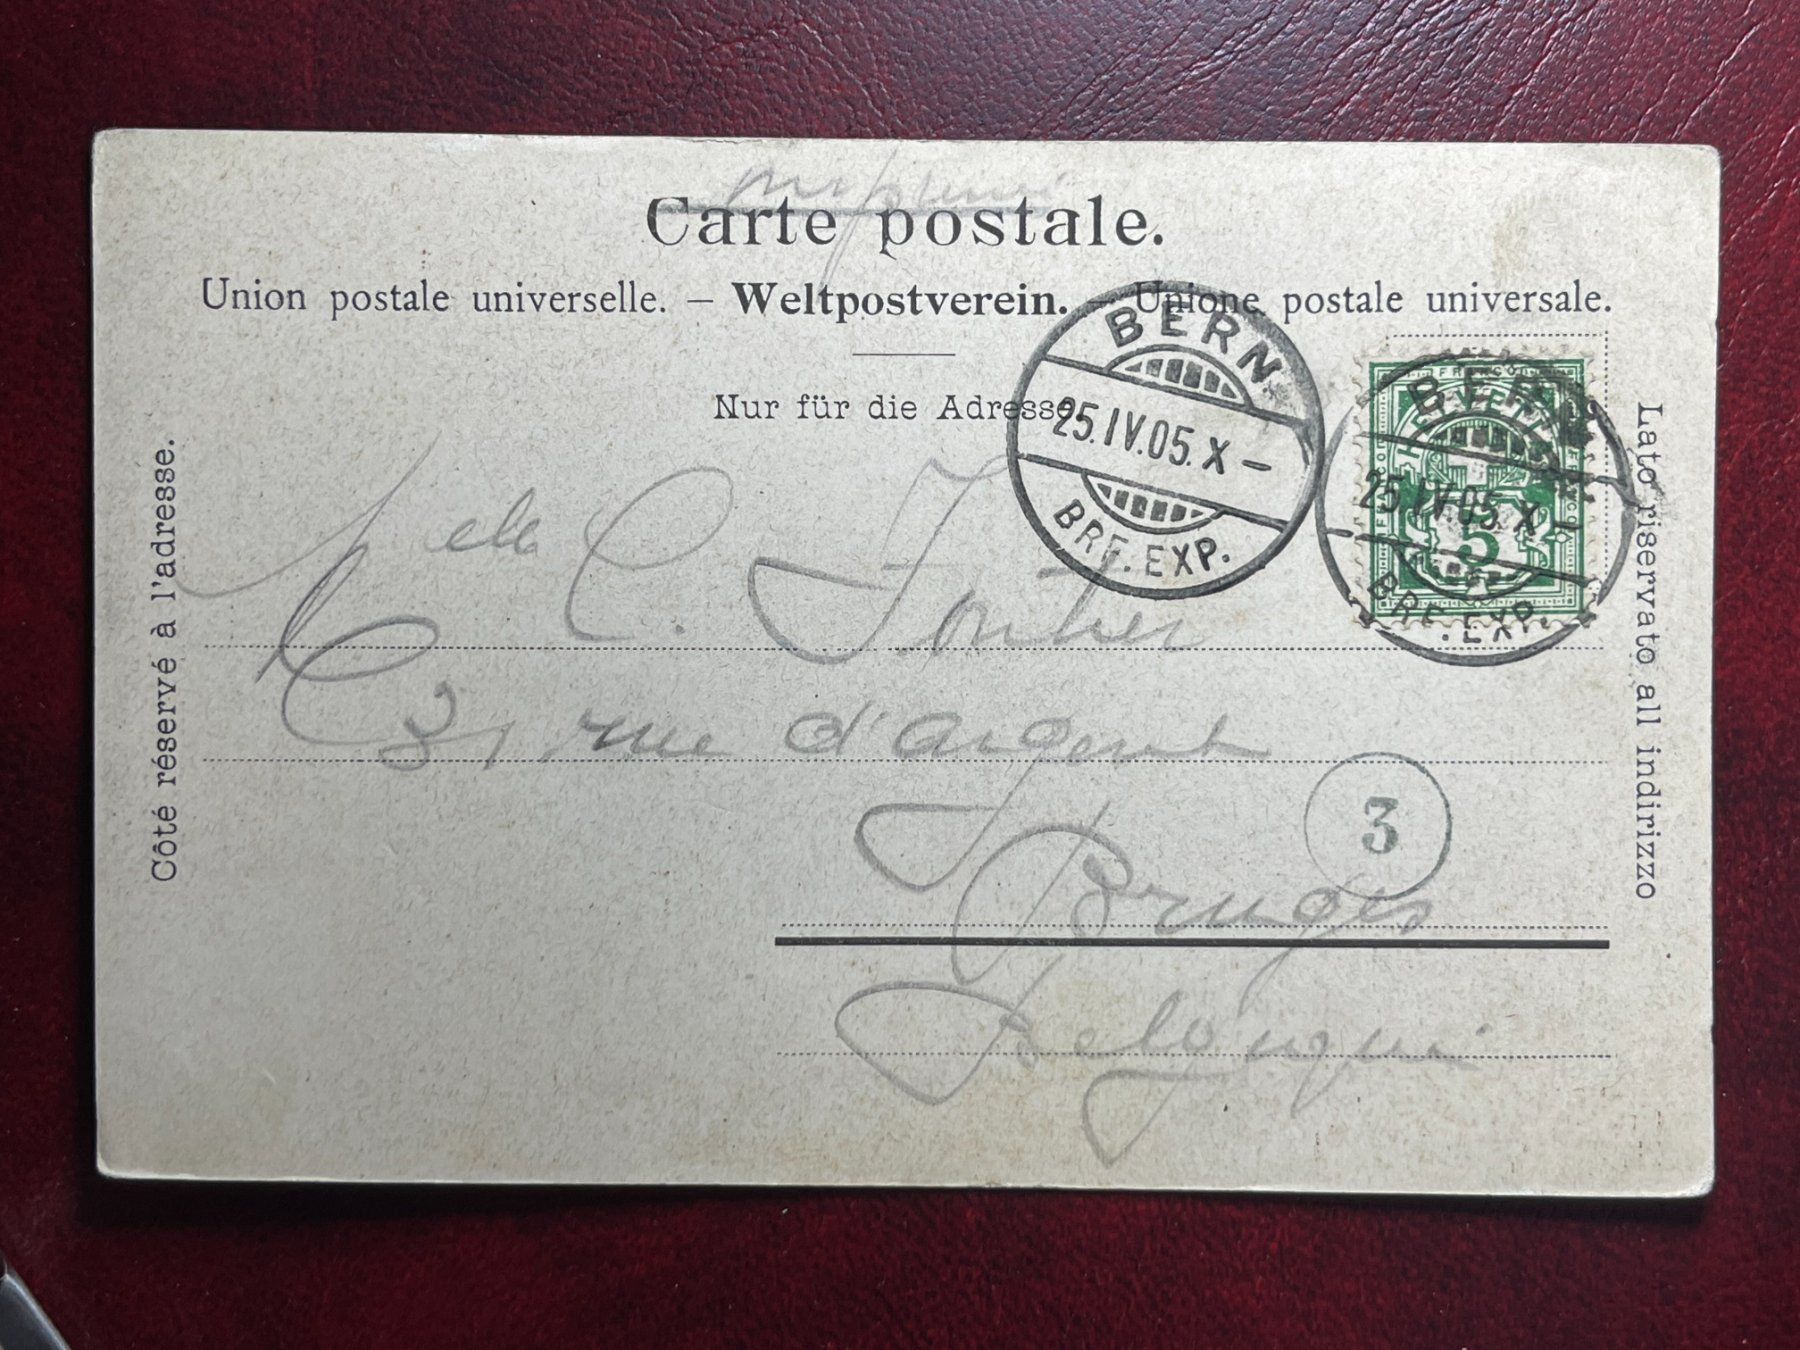 Carte postale.
Union postale universelle. – Weltpostverein. – Unione postale universale.
Nur für die Adresse.
Côté réservé à l'adresse.
Lato riservato all indirizzo
BERN
25.IV.05.X–
BRF.EXP.
BERN
25.IV.05 X–
BRF.EXP.
FRANCO
HELVETIA
5
Melle C.
31 rue d'argent
3
Bruges
Belgique